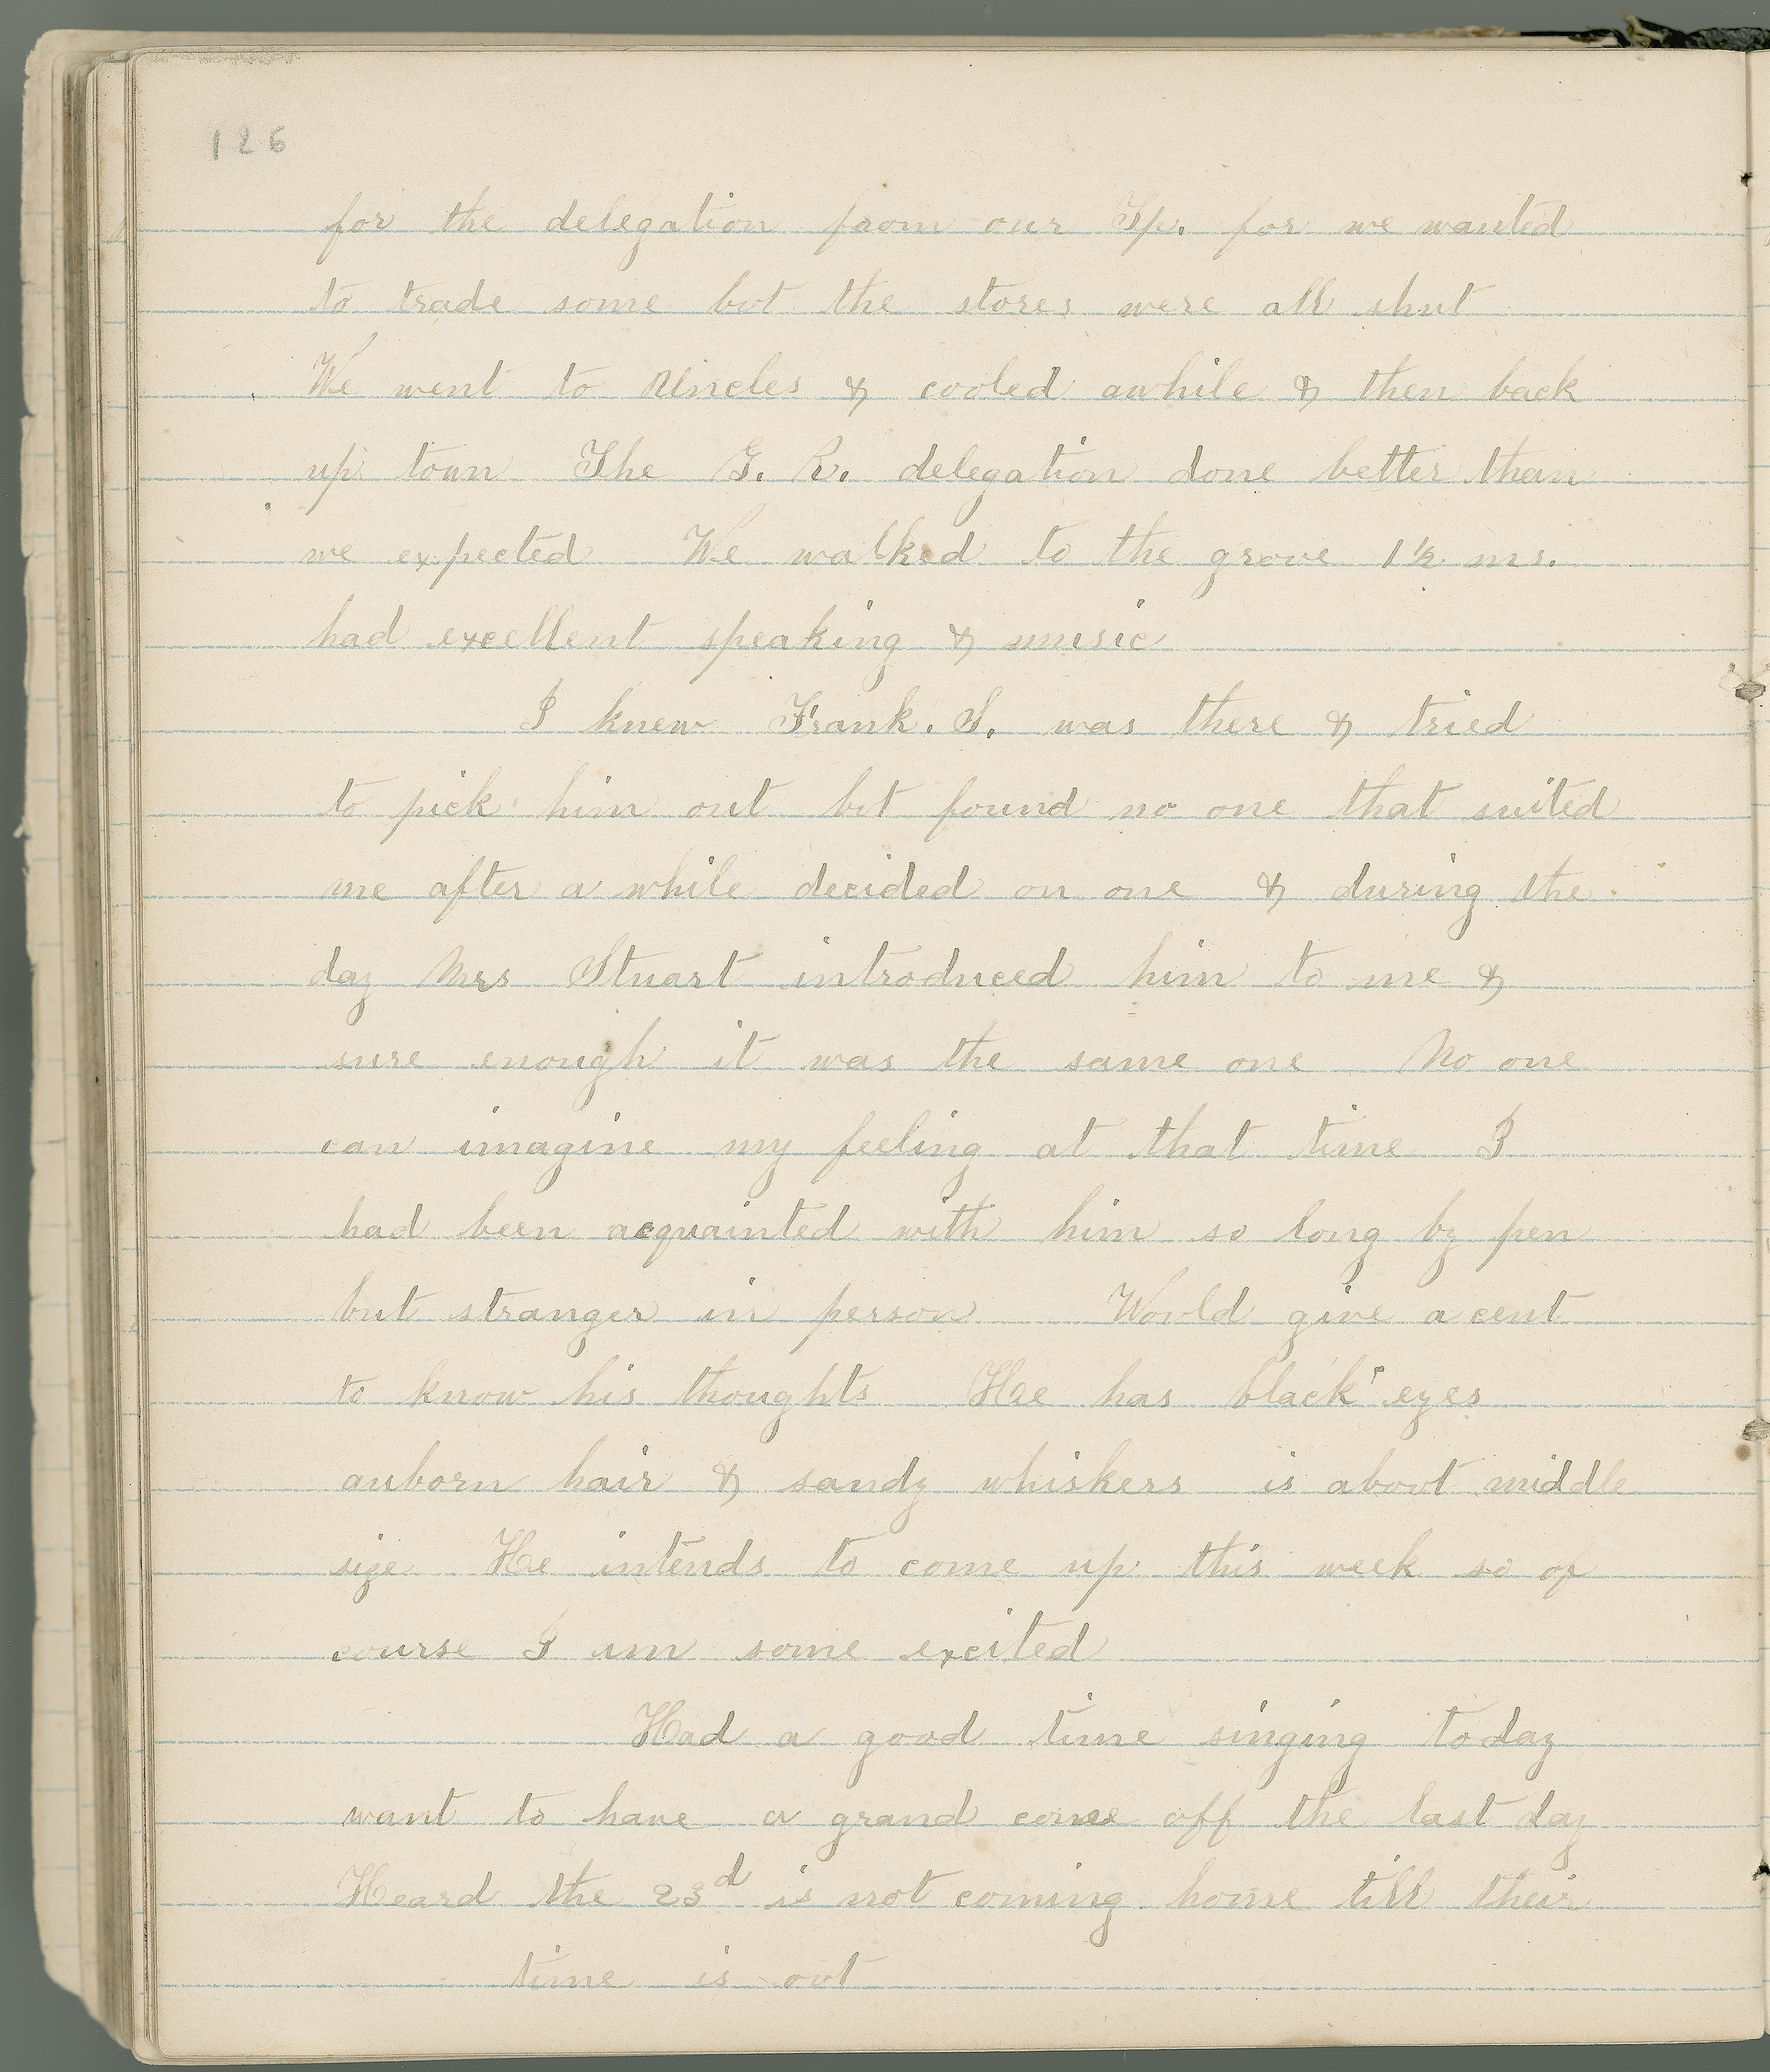 126
for the delegation from our Tp. for we wanted
to trade some but the stores were all shut
We went to Uncles & cooled awhile & then back
up town The G. R. delegation done better than
we expected We walked to the grove 1 1/2 ms.
had excellent speaking & music
I knew Frank. S. was there & tried
to pick him out but found no one that suited
me after a while decided on one & during the
day Mrs Stuart introduced him to me &
sure enough it was the same one No one
can imagine my feeling at that time I
had been acquainted with him so long by pen
but stranger in person Would give a cent
to know his thoughts He has black eyes
auborn hair & sandy whiskers is about middle
size He intends to come up this week so of
course I am some excited
Had a good time singing today
want to have a grand come off the last day
Heard the 23d is not coming home till their
time is out